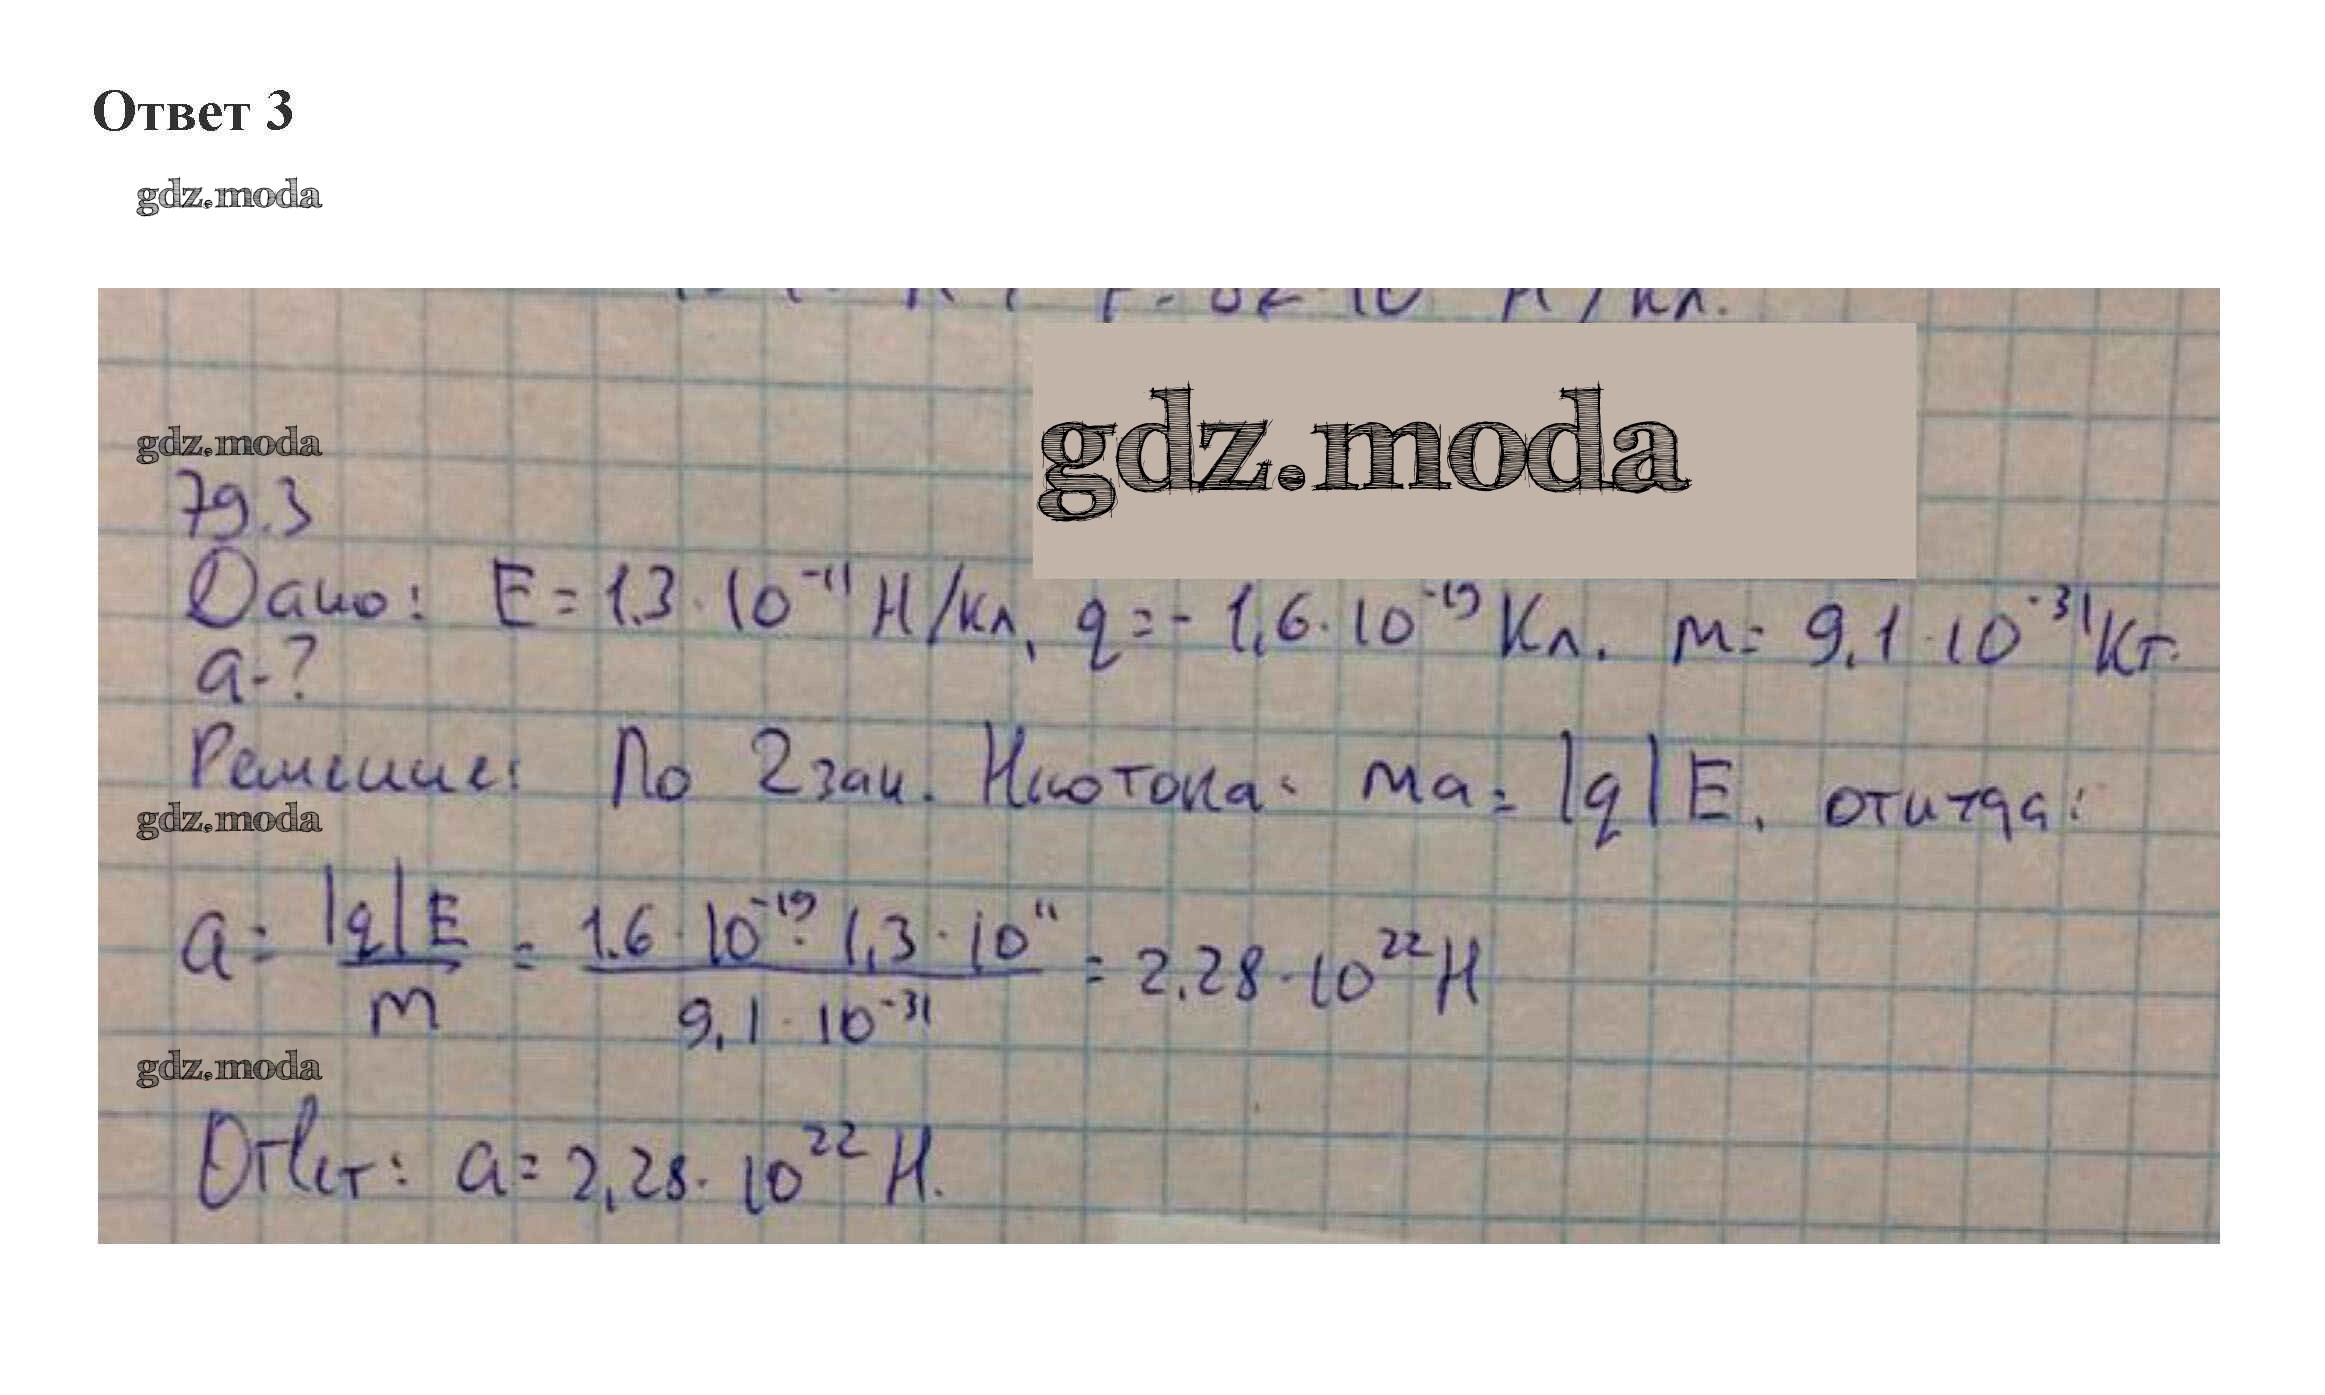 Ответ 3
gdz.moda
gdz.moda
gdz.moda
79.3
Дано: E = 1.3 · 10⁻¹¹ Н/кл, q = - 1,6 · 10⁻¹⁹ Кл. m = 9,1 · 10⁻³¹ Кг.
a - ?
Решение: По 2 зак. Ньютона: ma = |q| E, откуда:
gdz.moda
a = |q| E / m = 1.6 · 10⁻¹⁹ · 1,3 · 10¹¹ / 9,1 · 10⁻³¹ = 2,28 · 10²² Н
gdz.moda
Ответ: a = 2,28 · 10²² Н.